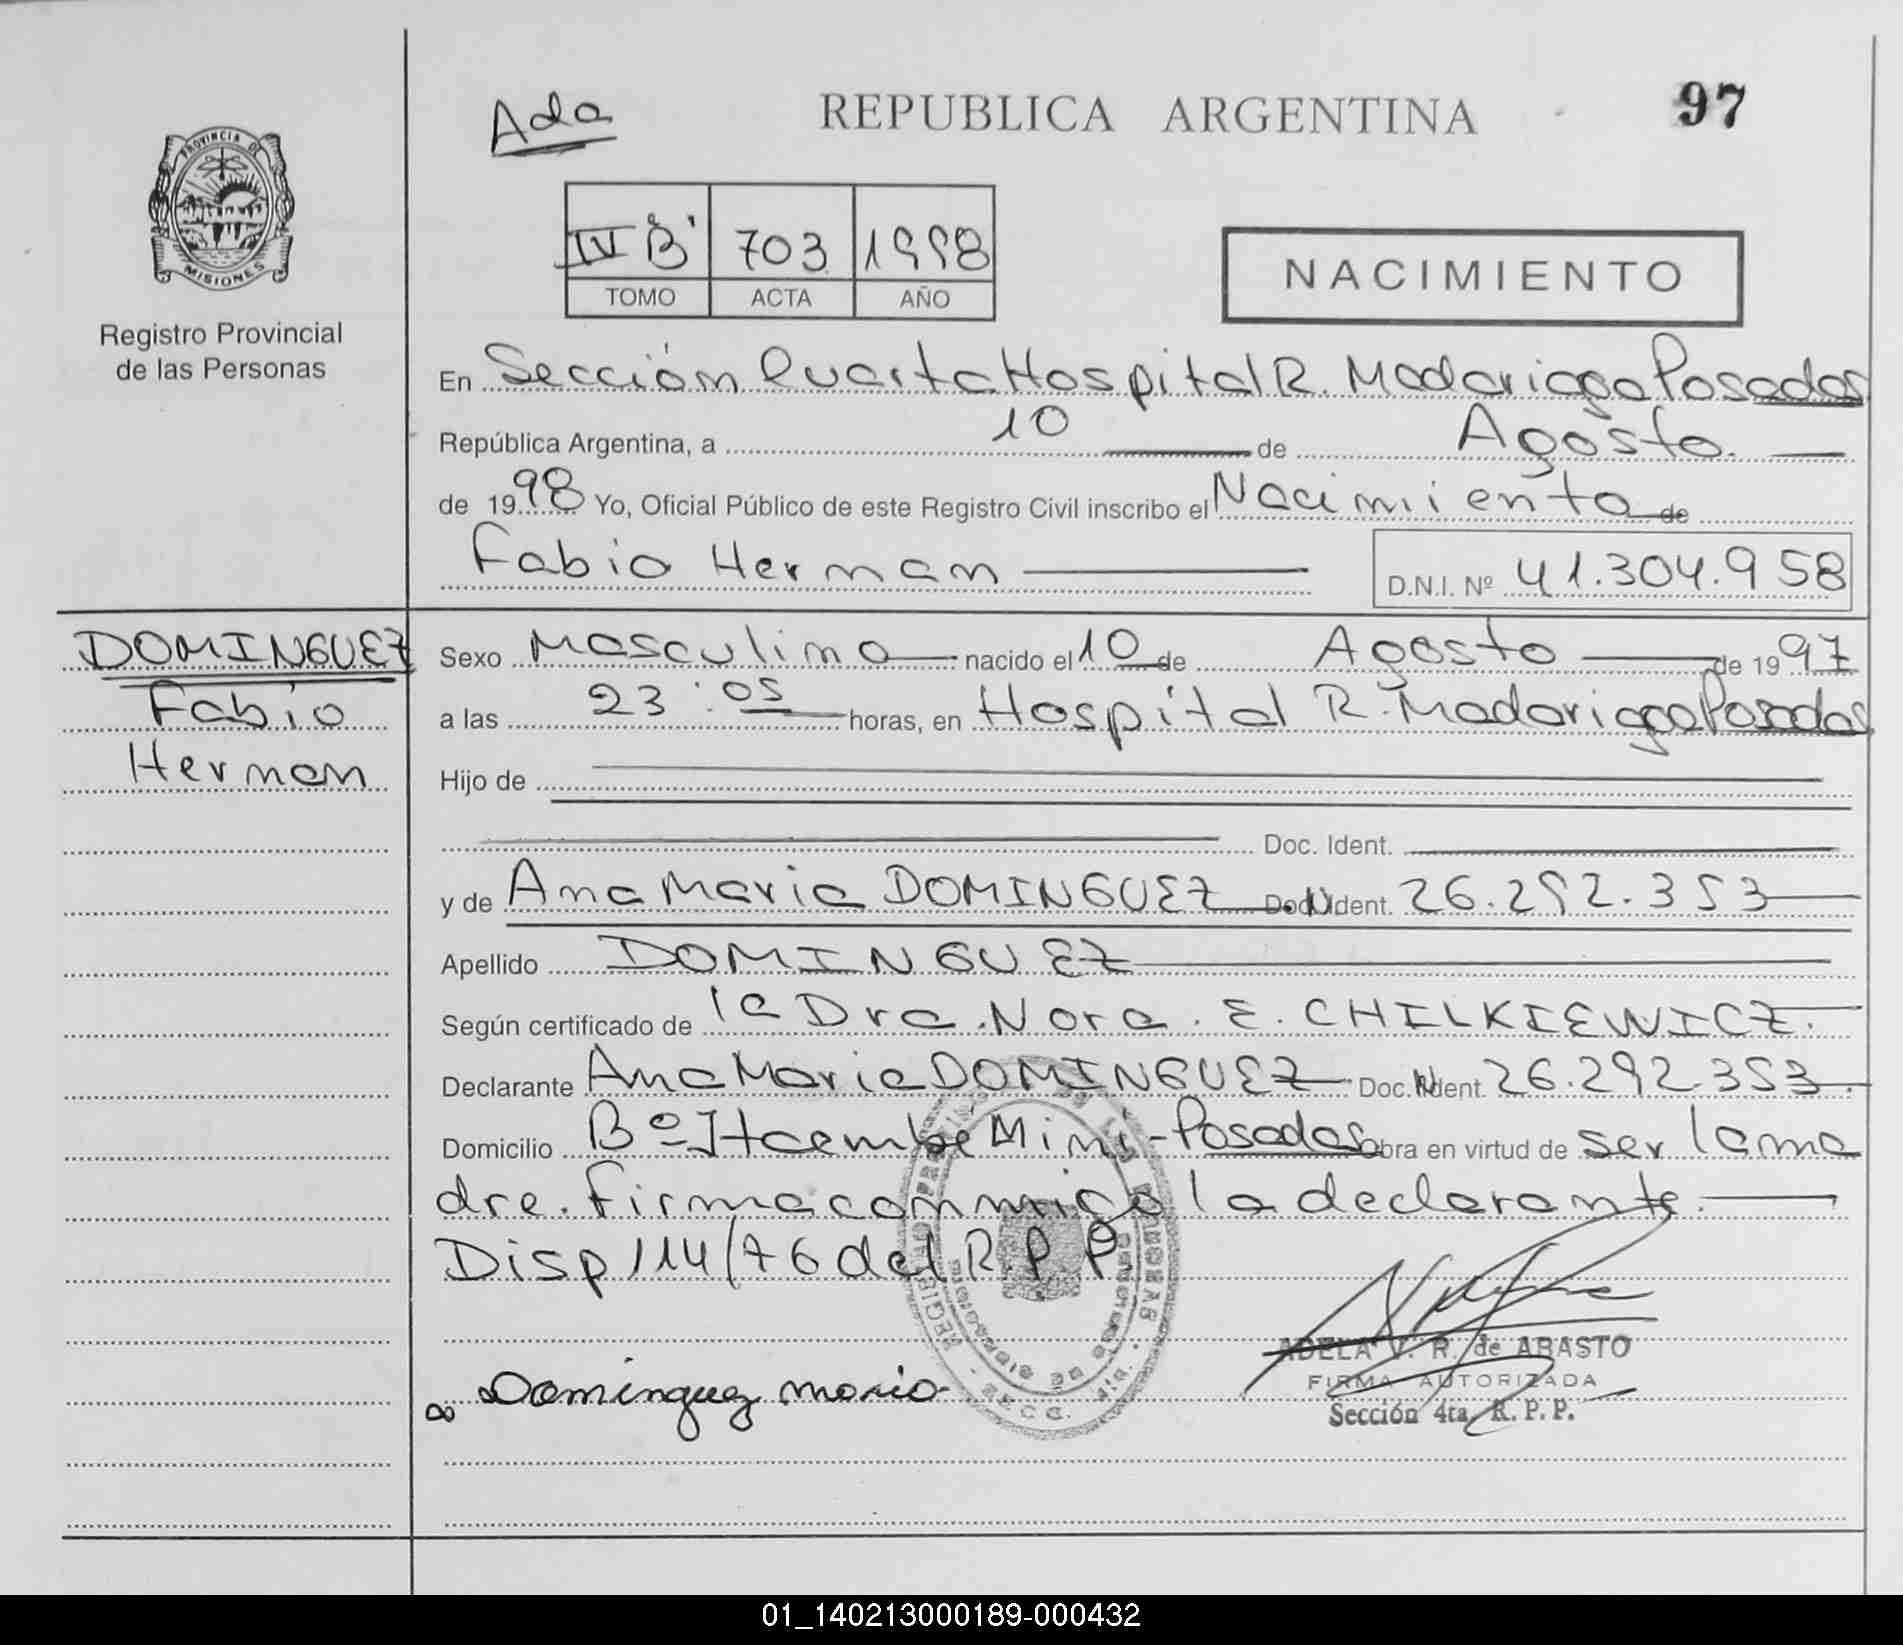 Ada
REPUBLICA ARGENTINA
97
PROVINCIA DE
MISIONES
Registro Provincial
de las Personas
IV "B" 703 1998
TOMO ACTA AÑO
NACIMIENTO
En Sección Cuarta Hospital R. Madariaga Posadas
República Argentina, a 10 de Agosto
de 1998 Yo, Oficial Público de este Registro Civil inscribo el Nacimiento de
Fabio Hernan D.N.I. Nº 41.304.958
DOMINGUEZ
Fabio
Hernan
Sexo Masculino nacido el 10 de Agosto de 1997
a las 23:05 horas, en Hospital R. Madariaga Posadas
Hijo de
Doc. Ident.
y de Ana Maria DOMINGUEZ Doc. Ident. 26.292.353
Apellido DOMINGUEZ
Según certificado de la Dra. Nora. E. CHILKIEWICZ.
Declarante Ana Maria DOMINGUEZ Doc. Ident. 26.292.353.
Domicilio Bº Itaembé Mini-Posadas obra en virtud de ser la ma
dre. Firma conmigo la declarante.
Disp 114/76 del R.P.P
Dominguez Maria
ADELA V. R. de ABASTO
FIRMA AUTORIZADA
Sección 4ta. R. P. P.
01_140213000189-000432